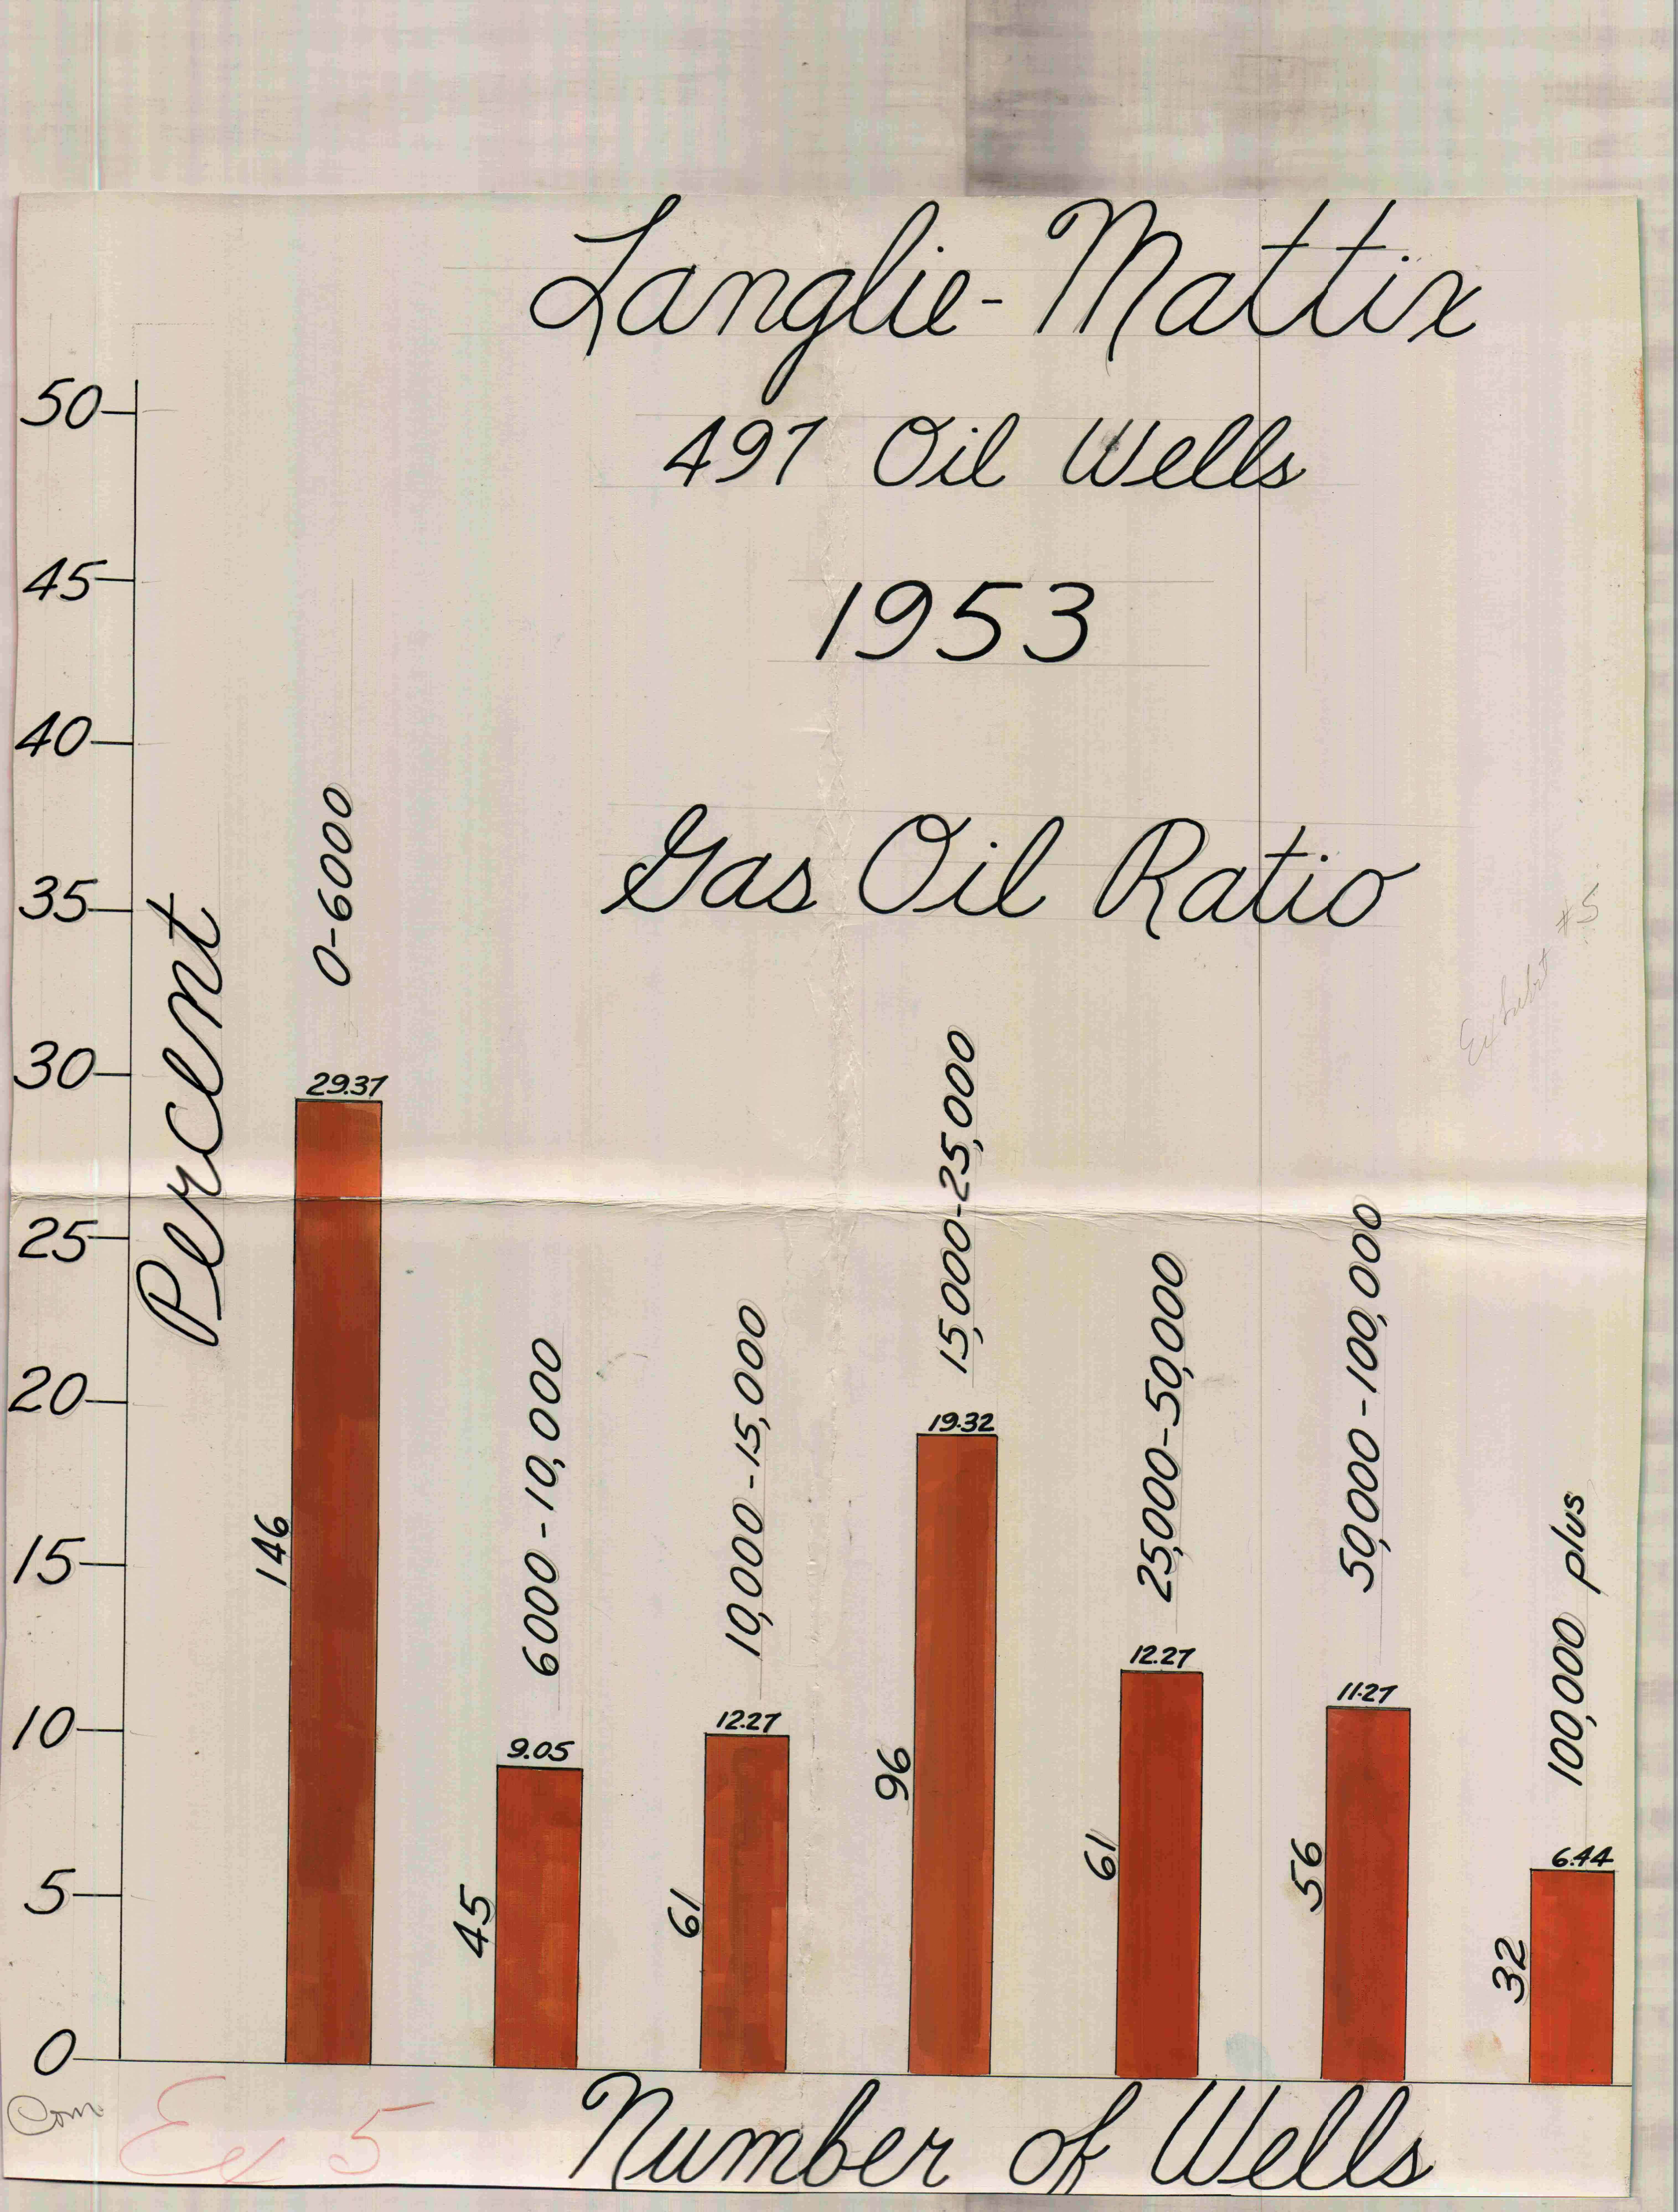 Langlie-Mattix
497 Oil Wells
1953
Gas Oil Ratio
Exhibit #5
Percent
50
45
40
35
30
25
20
15
10
5
0
0-6000
29.37
146
6000-10,000
9.05
45
10,000-15,000
12.27
61
15,000-25,000
19.32
96
25,000-50,000
12.27
61
50,000-100,000
11.27
56
100,000 plus
6.44
32
Com
Ex 5
Number of Wells